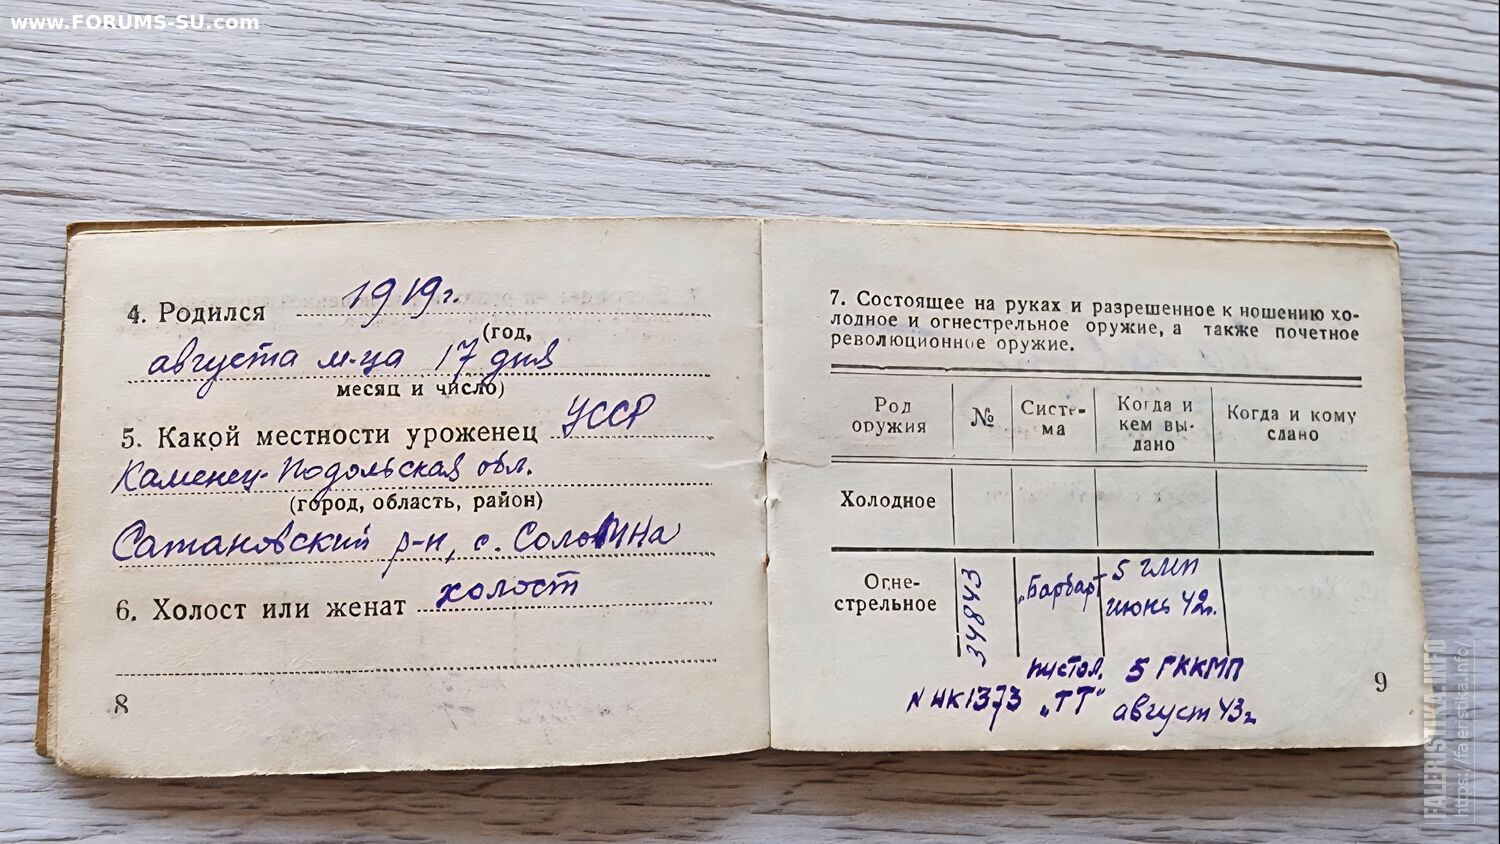 www.FORUMS-SU.com
4. Родился 1919г.
(год,
августа м-ца 17 дня
месяц и число)
5. Какой местности уроженец УССР
Каменец-Подольская обл.
(город, область, район)
Сатановский р-н, с. Соломна
6. Холост или женат холост
8
7. Состоящее на руках и разрешенное к ношению хо-
лодное и огнестрельное оружие, а также почетное
революционное оружие.
Род оружия № Систе-ма Когда и кем вы-дано Когда и кому сдано
Холодное
Огне-стрельное 34843 „Барбар" 5 ГМП июнь 42г.
пистол. 5 ГККМП
N НК1373 „ТТ" август 43г
9
FALERISTIKA.INFO
https://faleristika.info/